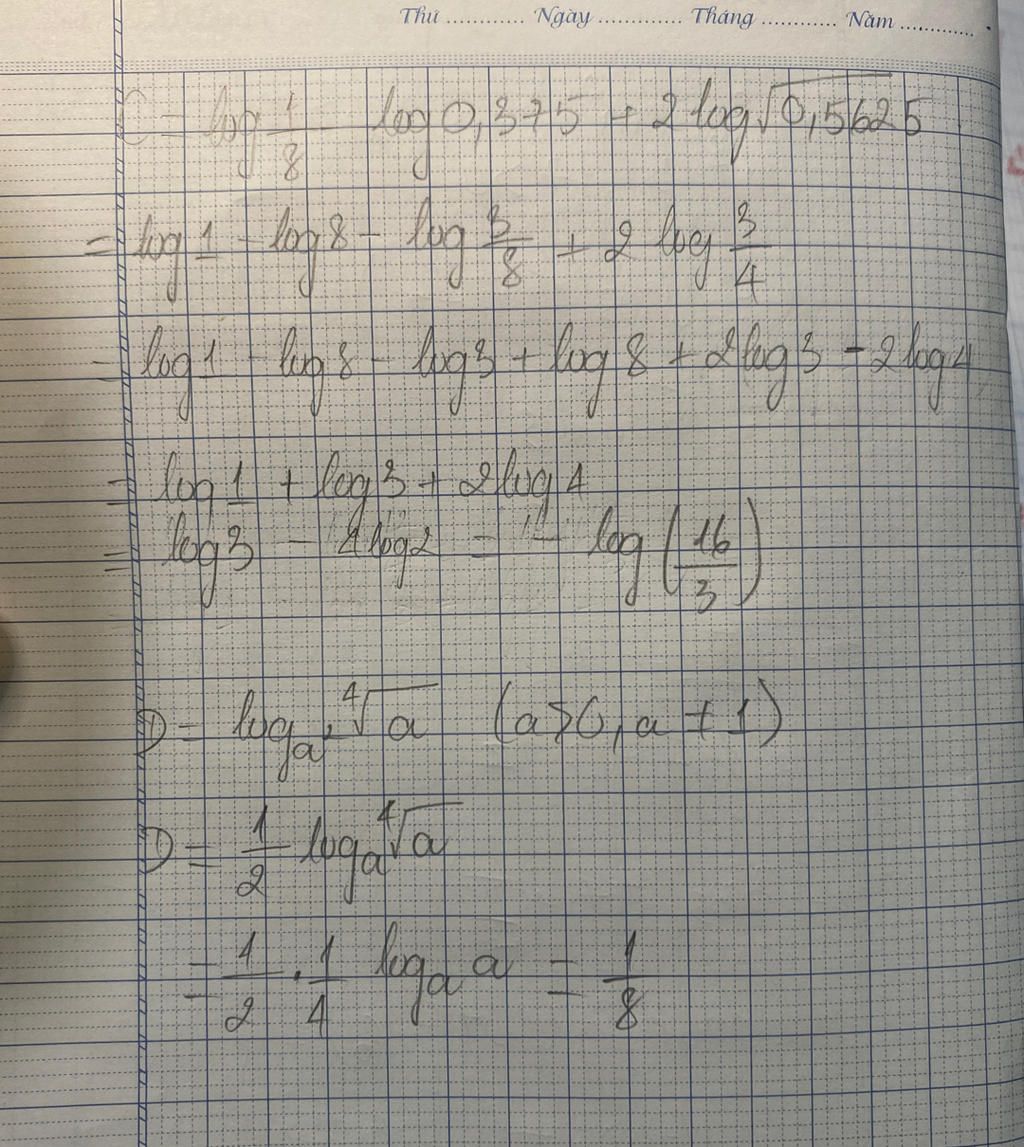 Thứ ............ Ngày ............. Tháng ............ Năm ............
C = log 1/8 - log 0,375 + 2 log √0,5625
= log 1 - log 8 - log 3/8 + 2 log 3/4
= log 1 - log 8 - log 3 + log 8 + 2 log 3 - 2 log 4
= log 1 + log 3 + 2 log 4
= log 3 - 4 log 2 = - log (16/3)
D = logₐ² ⁴√a (a > 0, a ≠ 1)
D = 1/2 logₐ ⁴√a
= 1/2 . 1/4 logₐ a = 1/8